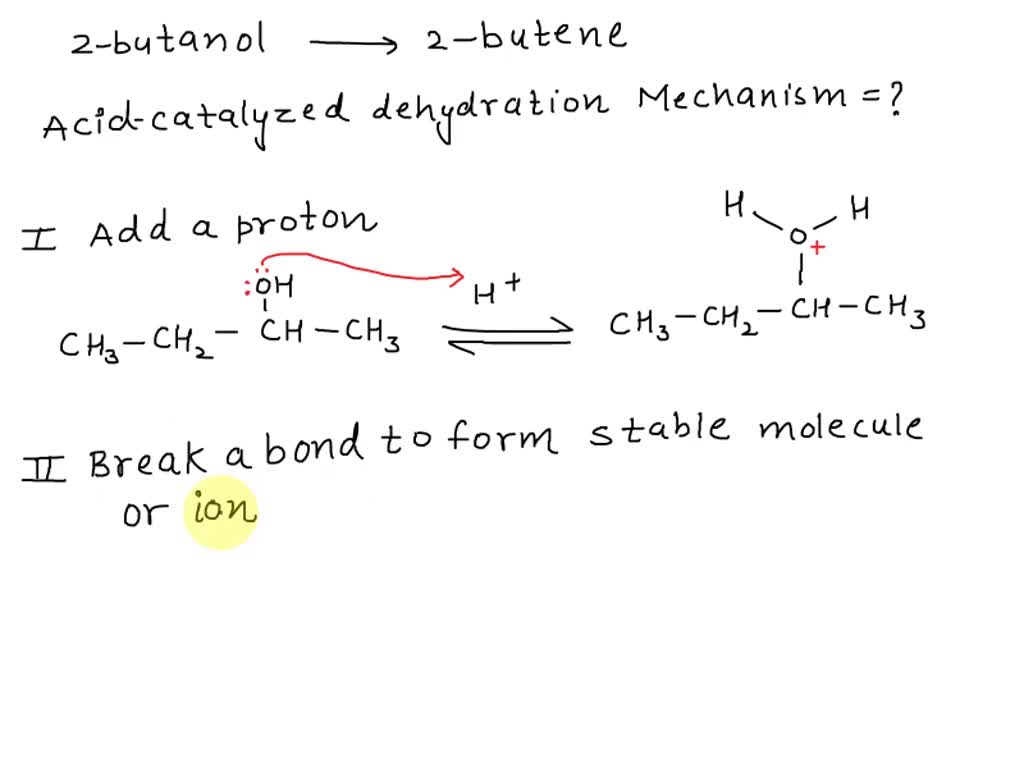 2-butanol ⟶ 2-butene
Acid-catalyzed dehydration Mechanism = ?
I Add a proton
H H
O +
:ÖH
H+
CH₃-CH₂-CH-CH₃ ⇌ CH₃-CH₂-CH-CH₃
II Break a bond to form stable molecule
or ion